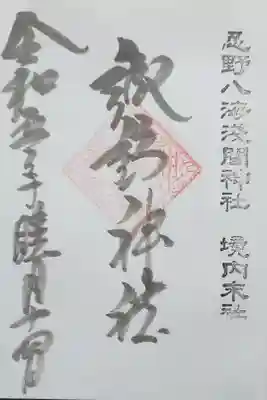 忍野八海淺間神社 境内末社
神社
令和五年睦月十四日